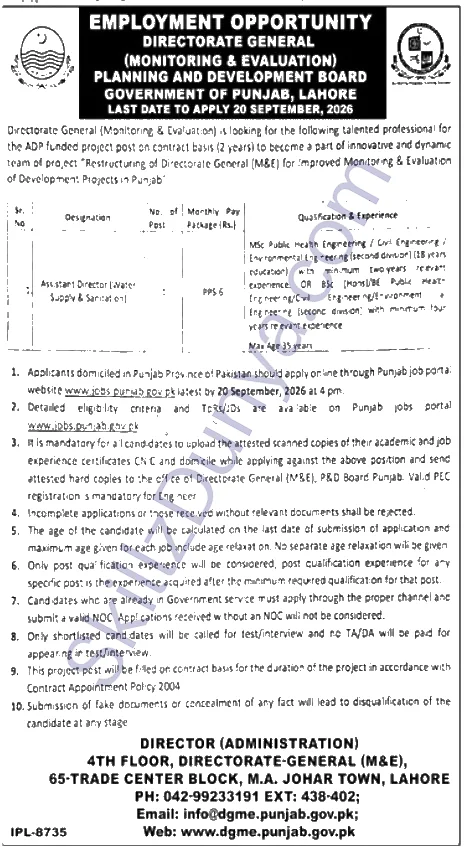 EMPLOYMENT OPPORTUNITY
DIRECTORATE GENERAL
(MONITORING & EVALUATION)
PLANNING AND DEVELOPMENT BOARD
GOVERNMENT OF PUNJAB, LAHORE
LAST DATE TO APPLY 20 SEPTEMBER, 2026
Directorate General (Monitoring & Evaluation) is looking for the following talented professional for
the ADP funded project post on contract basis (2 years) to become a part of innovative and dynamic
team of project "Restructuring of Directorate General (M&E) for Improved Monitoring & Evaluation
of Development Projects in Punjab"
Sr. No
Designation
No. of Post
Monthly Pay Package (Rs.)
Qualification & Experience
Assistant Director (Water
Supply & Sanitation)
PPS-6
MSc Public Health Engineering / Civil Engineering /
Environmental Engineering (second division) (18 years
education) with minimum two years relevant
experience. OR BSc (Hons)/BE Public Health
Engineering/Civil Engineering/Environment
Engineering (second division) with minimum four
years relevant experience
Max Age 35 years
1. Applicants domiciled in Punjab Province of Pakistan should apply online through Punjab job portal
website www.jobs.punjab.gov.pk latest by 20 September, 2026 at 4 pm.
2. Detailed eligibility criteria and TORs/JDs are available on Punjab jobs portal
www.jobs.punjab.gov.pk
3. It is mandatory for all candidates to upload the attested scanned copies of their academic and job
experience certificates CNIC and domicile while applying against the above position and send
attested hard copies to the office of Directorate General (M&E), P&D Board Punjab. Valid PEC
registration is mandatory for Engineer
4. Incomplete applications or those received without relevant documents shall be rejected.
5. The age of the candidate will be calculated on the last date of submission of application and
maximum age given for each job include age relaxation. No separate age relaxation will be given
6. Only post qualification experience will be considered, post qualification experience for any
specific post is the experience acquired after the minimum required qualification for that post.
7. Candidates who are already in Government service must apply through the proper channel and
submit a valid NOC. Applications received without an NOC will not be considered.
8. Only shortlisted candidates will be called for test/interview and no TA/DA will be paid for
appearing in test/interview.
9. This project post will be filled on contract basis for the duration of the project in accordance with
Contract Appointment Policy 2004
10. Submission of fake documents or concealment of any fact will lead to disqualification of the
candidate at any stage
DIRECTOR (ADMINISTRATION)
4TH FLOOR, DIRECTORATE-GENERAL (M&E),
65-TRADE CENTER BLOCK, M.A. JOHAR TOWN, LAHORE
PH: 042-99233191 EXT: 438-402;
Email: info@dgme.punjab.gov.pk;
IPL-8735
Web: www.dgme.punjab.gov.pk
SkillzDunya.com